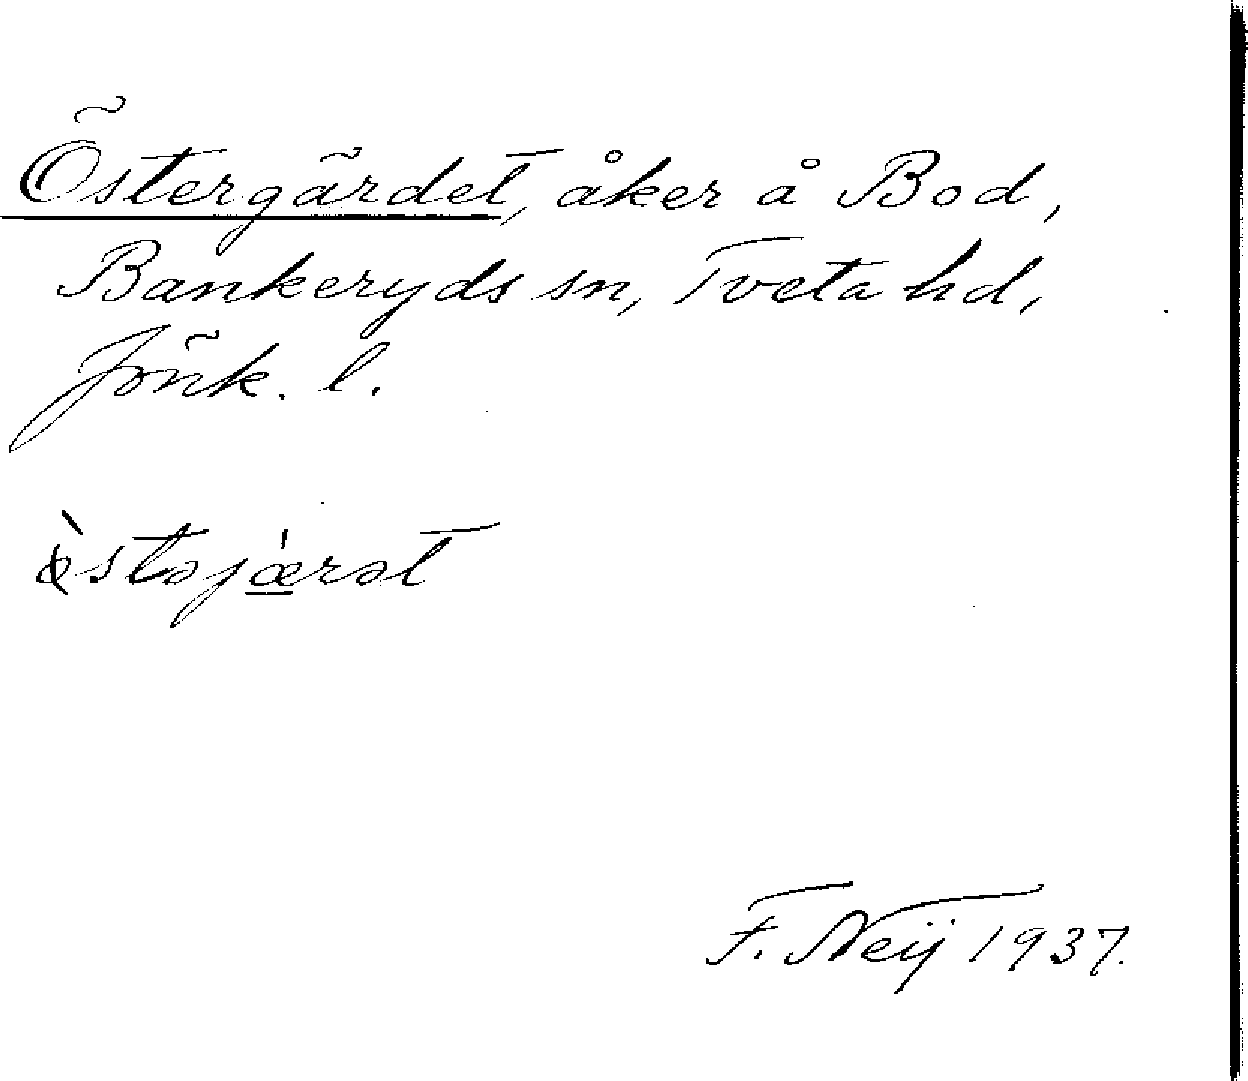 Östergärdet, åker å Bod,
Bankeryds sn, Tveta hd,
Jönk. l.
ø̀stəjǽ̲rət
F. Neij 1937.